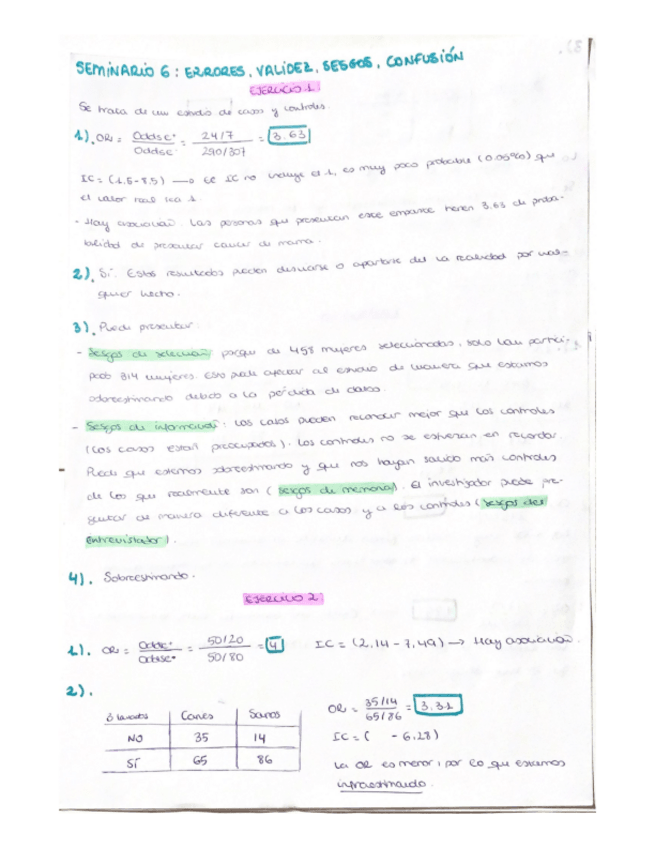 SEMINARIO 6: ERRORES, VALIDEZ, SESGOS, CONFUSIÓN
EJERCICIO 1
Se trata de un estudio de casos y controles.
1). OR = Oddsc+ / Oddsc- = 24/7 / 290/307 = 3.63
IC = (1.5-8.5) → El IC no incluye el 1, es muy poco probable (0.05%) que
el valor real sea 1.
- Hay asociación. Las personas que presentan este empaste tienen 3.63 de proba-
bilidad de presentar cáncer de mama.
2). Sí. Estos resultados pueden desviarse o apartarse de la realidad por cual-
quier hecho.
3). Puede presentar:
- Sesgos de selección porque de 458 mujeres seleccionadas, solo han partici-
pado 314 mujeres. Esto puede afectar al estudio de manera que estamos
sobreestimando debido a la pérdida de datos.
- Sesgos de información: Los casos pueden recordar mejor que los controles
(los casos están preocupados). Los controles no se esfuerzan en recordar.
Puede que estemos sobreestimando y que nos hayan salido más controles
de los que realmente son (sesgos de memoria). El investigador puede pre-
guntar de manera diferente a los casos y a los controles (sesgos del
entrevistador).
4). Sobreestimando.
EJERCICIO 2
1). OR = Oddsc+ / Oddsc- = 50/20 / 50/80 = 4 IC = (2.14-7.49) → Hay asociación.
2).
3 lavados Caries Sanos
NO 35 14
SÍ 65 86
OR = 35/14 / 65/86 = 3.31
IC = ( - 6.28)
La OR es menor, por lo que estamos
infraestimando.